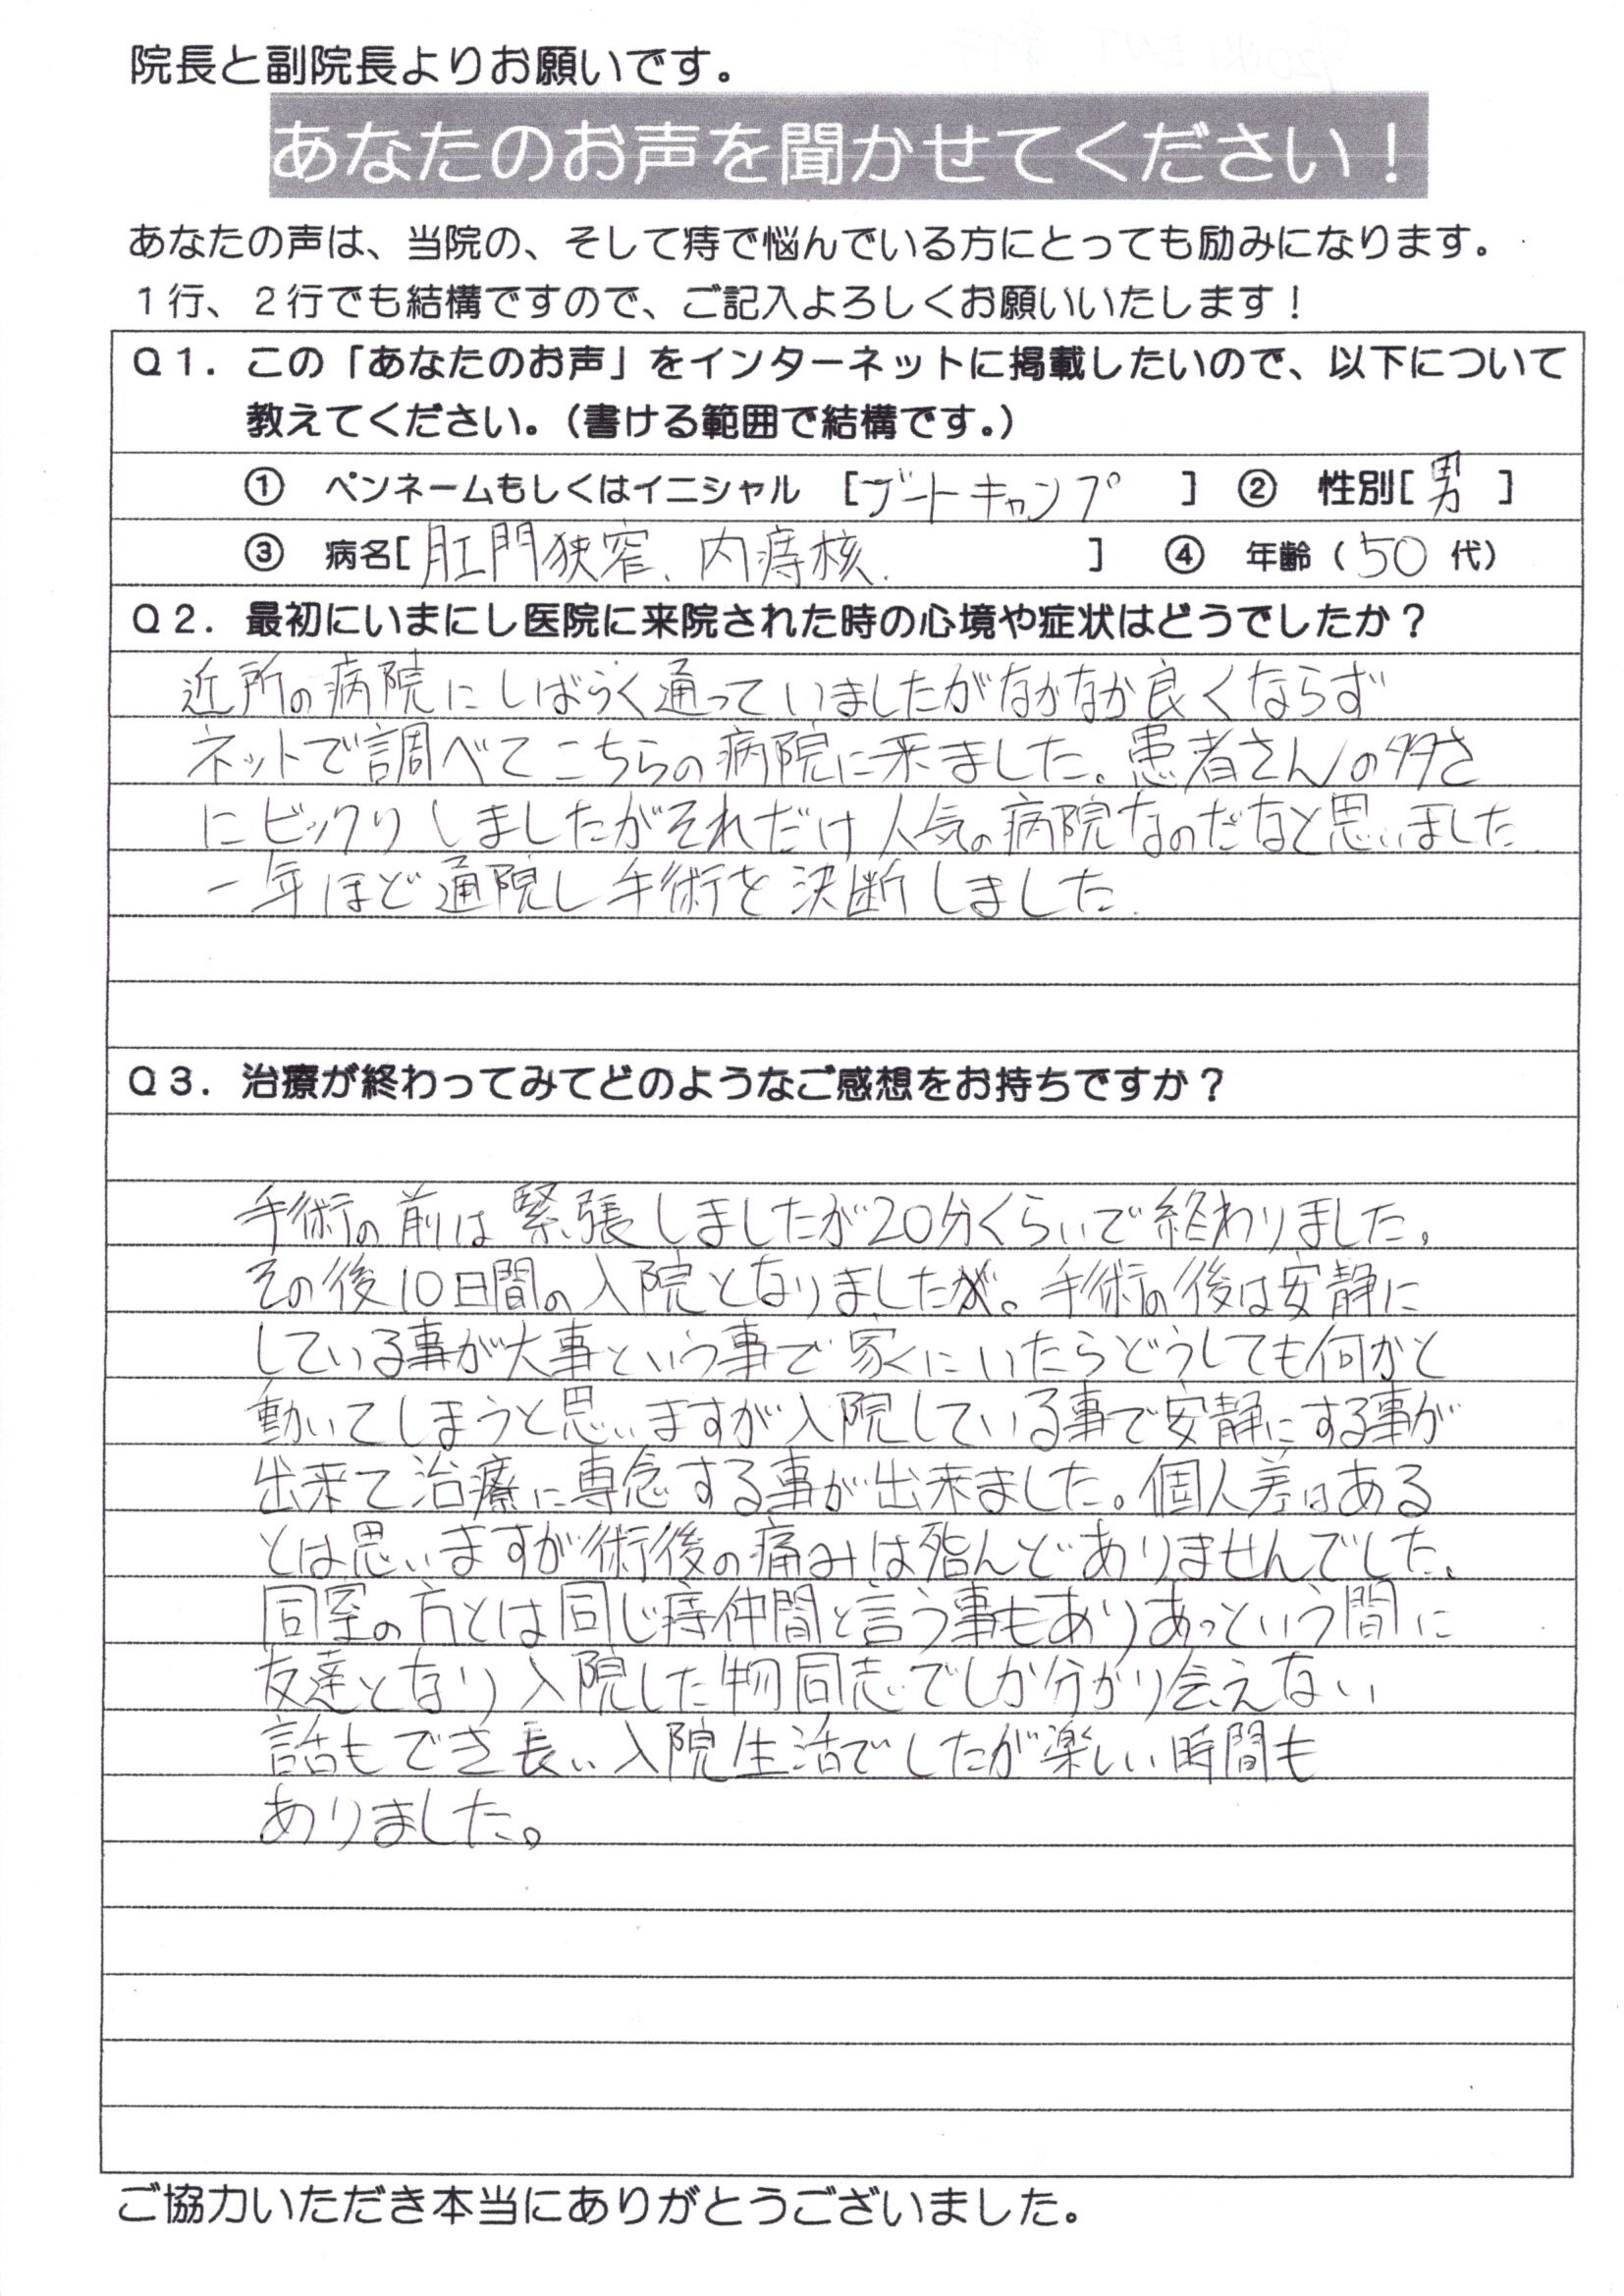 院長と副院長よりお願いです。
あなたのお声を聞かせてください！
あなたの声は、当院の、そして痔で悩んでいる方にとっても励みになります。
１行、２行でも結構ですので、ご記入よろしくお願いいたします！
Ｑ１．この「あなたのお声」をインターネットに掲載したいので、以下について
教えてください。（書ける範囲で結構です。）
① ペンネームもしくはイニシャル ［ブートキャンプ ］ ② 性別［男 ］
③ 病名［肛門狭窄、内痔核. ］ ④ 年齢（50 代）
Ｑ２．最初にいまにし医院に来院された時の心境や症状はどうでしたか？
近所の病院にしばらく通っていましたがなかなか良くならず
ネットで調べてこちらの病院に来ました。患者さんの多さ
にビックリしましたがそれだけ人気の病院なのだなと思いました
一年ほど通院し手術を決断しました.
Ｑ３．治療が終わってみてどのようなご感想をお持ちですか？
手術の前は緊張しましたが20分くらいで終わりました。
その後10日間の入院となりましたが。手術の後は安静に
している事が大事という事で家にいたらどうしても何かと
動いてしまうと思いますが入院している事で安静にする事が
出来て治療に専念する事が出来ました。個人差はある
とは思いますが術後の痛みは殆んどありませんでした。
同室の方とは同じ痔仲間と言う事もありあっという間に
友達となり入院した物同志でしか分かり会えない
話もでき長い入院生活でしたが楽しい時間も
ありました。
ご協力いただき本当にありがとうございました。